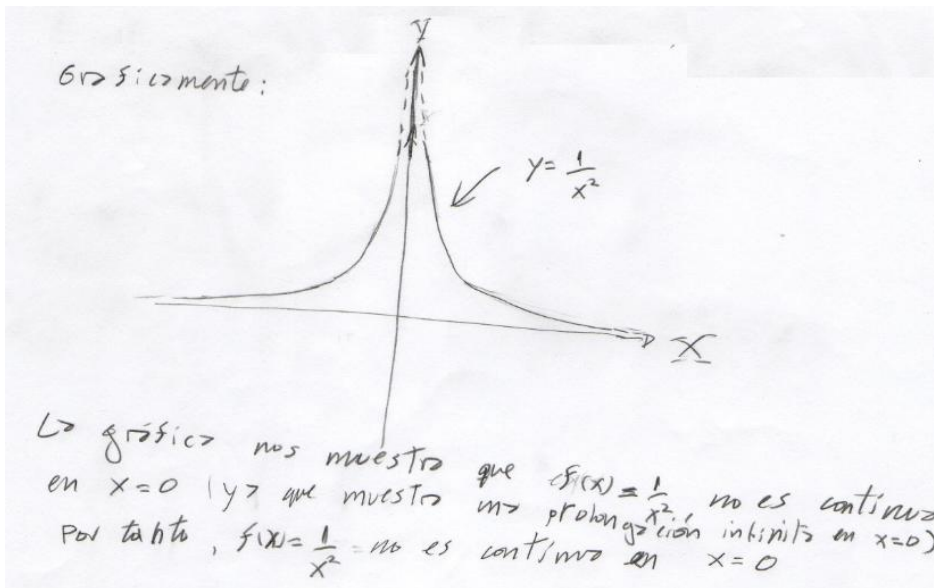 y
Gráficamente:
y = 1/x²
X
La gráfica nos muestra que f(x) = 1/x², no es continua
en x=0 (ya que muestra una prolongación infinita en x=0)
Por tanto, f(x) = 1/x² no es continua en x=0